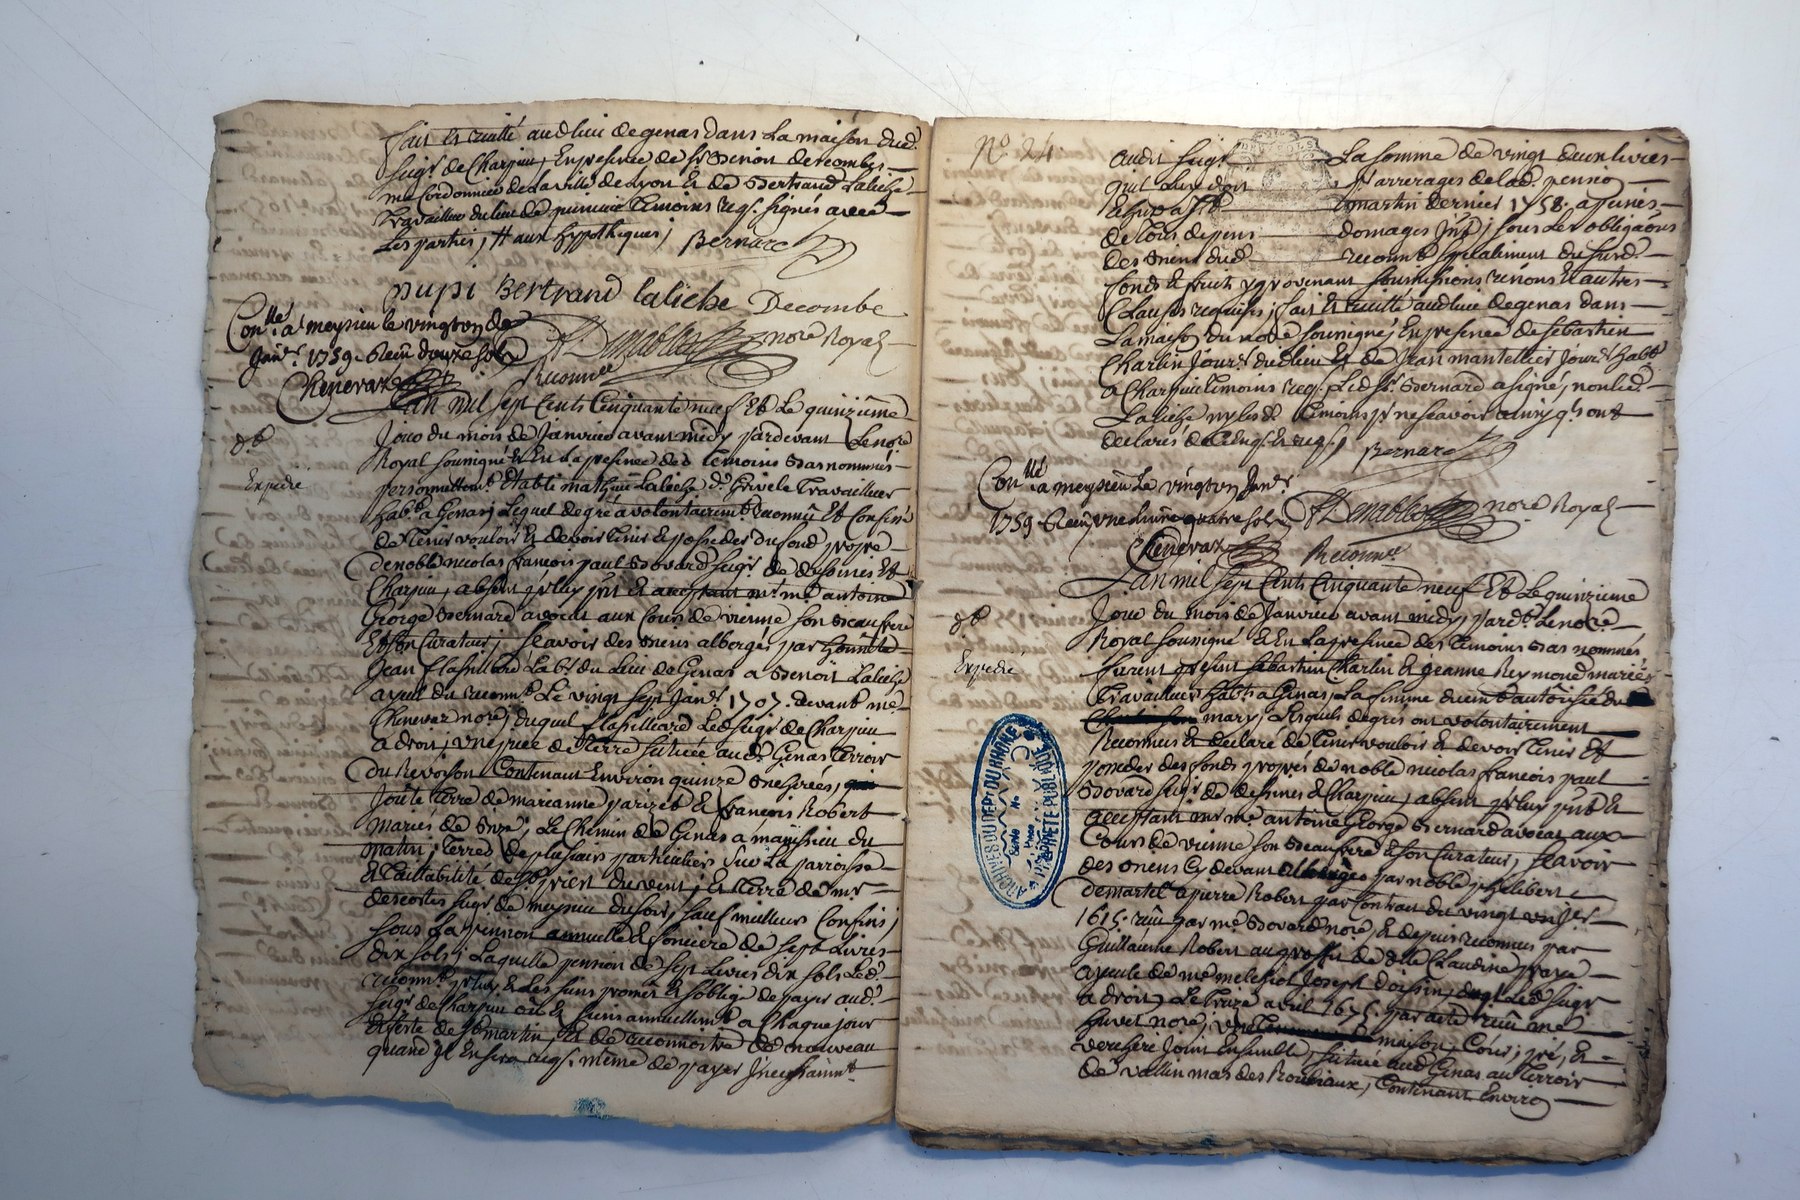 fait et recitté aud. lieu de genas dans La maison dud.
seigr. de Charpieu, En presence de sr. Benoit Decombes
me Cordonnier de La ville de Lyon et de Bertrand Laliche
Travailleur du lieu de temoins reqs. signés avec
Les parties, # aux hyppotheques, Bernard
pupi Bertrand laliche Decombe
Conllé. a meysieu le vingt de
Janr. 1759. Receu douze sols
nore Royal
Chenevaz
Reconnce
L'an mil sept Cents Cinquante neuf Et Le quinzieme
Jour du mois de Janvier avant midy pardevant Le nore
Royal soussigné et En La presence des temoins bas nommés
Expedié
personnellemt. Etabli mathieu Laliche dt. Grivel Travailleur
habt. a Genas, Lequel de gré a volontairemt. reconnu Et Confessé
de Tenir vouloir et devoir tenir et posseder du fond propre
de noble nicolas francois paul Bovard seigr. de dessines Et
Charpieu, absent pr luy pnt et acceptant mr me antoine
George Bernard avocat aux Cours de vienne son Beaufrere
Et son Curateur, scavoir des biens albergés par honnete
Jean flassilliard La bt. du Lieu de Genas a Benoit Laliche
ayeul du reconnt. Le vingt sept Janr. 1707. devant me
Chenevez nore, duquel flassilliard Led. seigr. de Charpieu
a droit, une piece de Terre scituée aud. Genas Terroir
du Revoison Contenant Environ quinze bicherées,
Joute terre de marianne parizet et francois Robert
mariés de bize, Le Chemin de Genas a meissieu du
matin, terres de plusieurs particuliers sur La parroisse
et Taillabilité de st. priest du vent, et terre de mr
descottes seigr. de meysieu du soir, sauf meilleurs Confins,
sous La pension annuelle et fonciere de sept Livres
dix sols, Laquelle pension de sept Livres dix sols Led.
reconnt. pr luy et les siens promet et s'oblige de payer aud.
seigr. de Charpieu ou es siens annuellemt. a Chaque jour
et feste de st martin, et de reconnoitre de nouveau
quand Il En sera reqs. même de payer Incessamt.
No. 24
audit seigr. La somme de vingt deux livres
qu'il Luy doit pr arrerages de lad. pension
martin dernier 1758, a peines
de tous depens domages Intt, sous Les obligaons
des biens dud. reconnt. specialement du susd.
fonds et fruits y provenant soumissions renons et autres
Clauses requises, fait et recitté aud. lieu de genas dans
La maison du nore soussigné, En presence de sebastien
Charlin Jourr. dud. lieu et de Jean mantellier jourr. habt.
a Charpieu temoins reqs. Led. sr. Bernard a signé, non led.
Laliche ny lesd. temoins pr ne scavoir ainsy qls ont
declarés de ce Enqs. et reqs.,
Bernard
Conllé. a meysieu Le vingt Janr.
1759. Receu une livre quatre sols
nore Royal
Chenevaz
Reconnce
L'an mil sept Cents Cinquante neuf Et Le quinzieme
Jour du mois de Janvier avant midy, pardt. Le nore
Royal soussigné et En La presence des temoins bas nommés
Expedié
furent presents sebastien Charlin et Jeanne Reymond mariés
travailleurs habts. a Genas, La femme duement autorisée du
mary, Lesquels de gres ont volontairement
Reconnus Et declaré de Tenir vouloir et devoir Tenir Et
posseder des fonds propres de noble nicolas francois paul
Bovard seigr. de dessines et Charpieu, absent pr luy pnt et
acceptant mr me antoine George Bernard avocat aux
Cours de vienne son Beaufrere et son Curateur, scavoir
des biens Cy devant albergés par noble philibert
demartel a pierre Robert par Contrat du vingt un jer
1615. receu par me Bovard nore, et depuis reconnus par
Guillaume Robert au proffit de dlle Claudine
ayeule de me melchiol Joseph d'oisin, duql Led. seigr
a droit, Le treze avril 1675. par acte receu me
huvet nore, maison, Cour, pré, et
verchere Joint Ensemble, scituée aud. Genas au Terroir
de vallin mas des Roubiaux, Contenant Environ
ARCHIVES DU DEPT DU RHONE
PROPRIETE PUBLIQUE